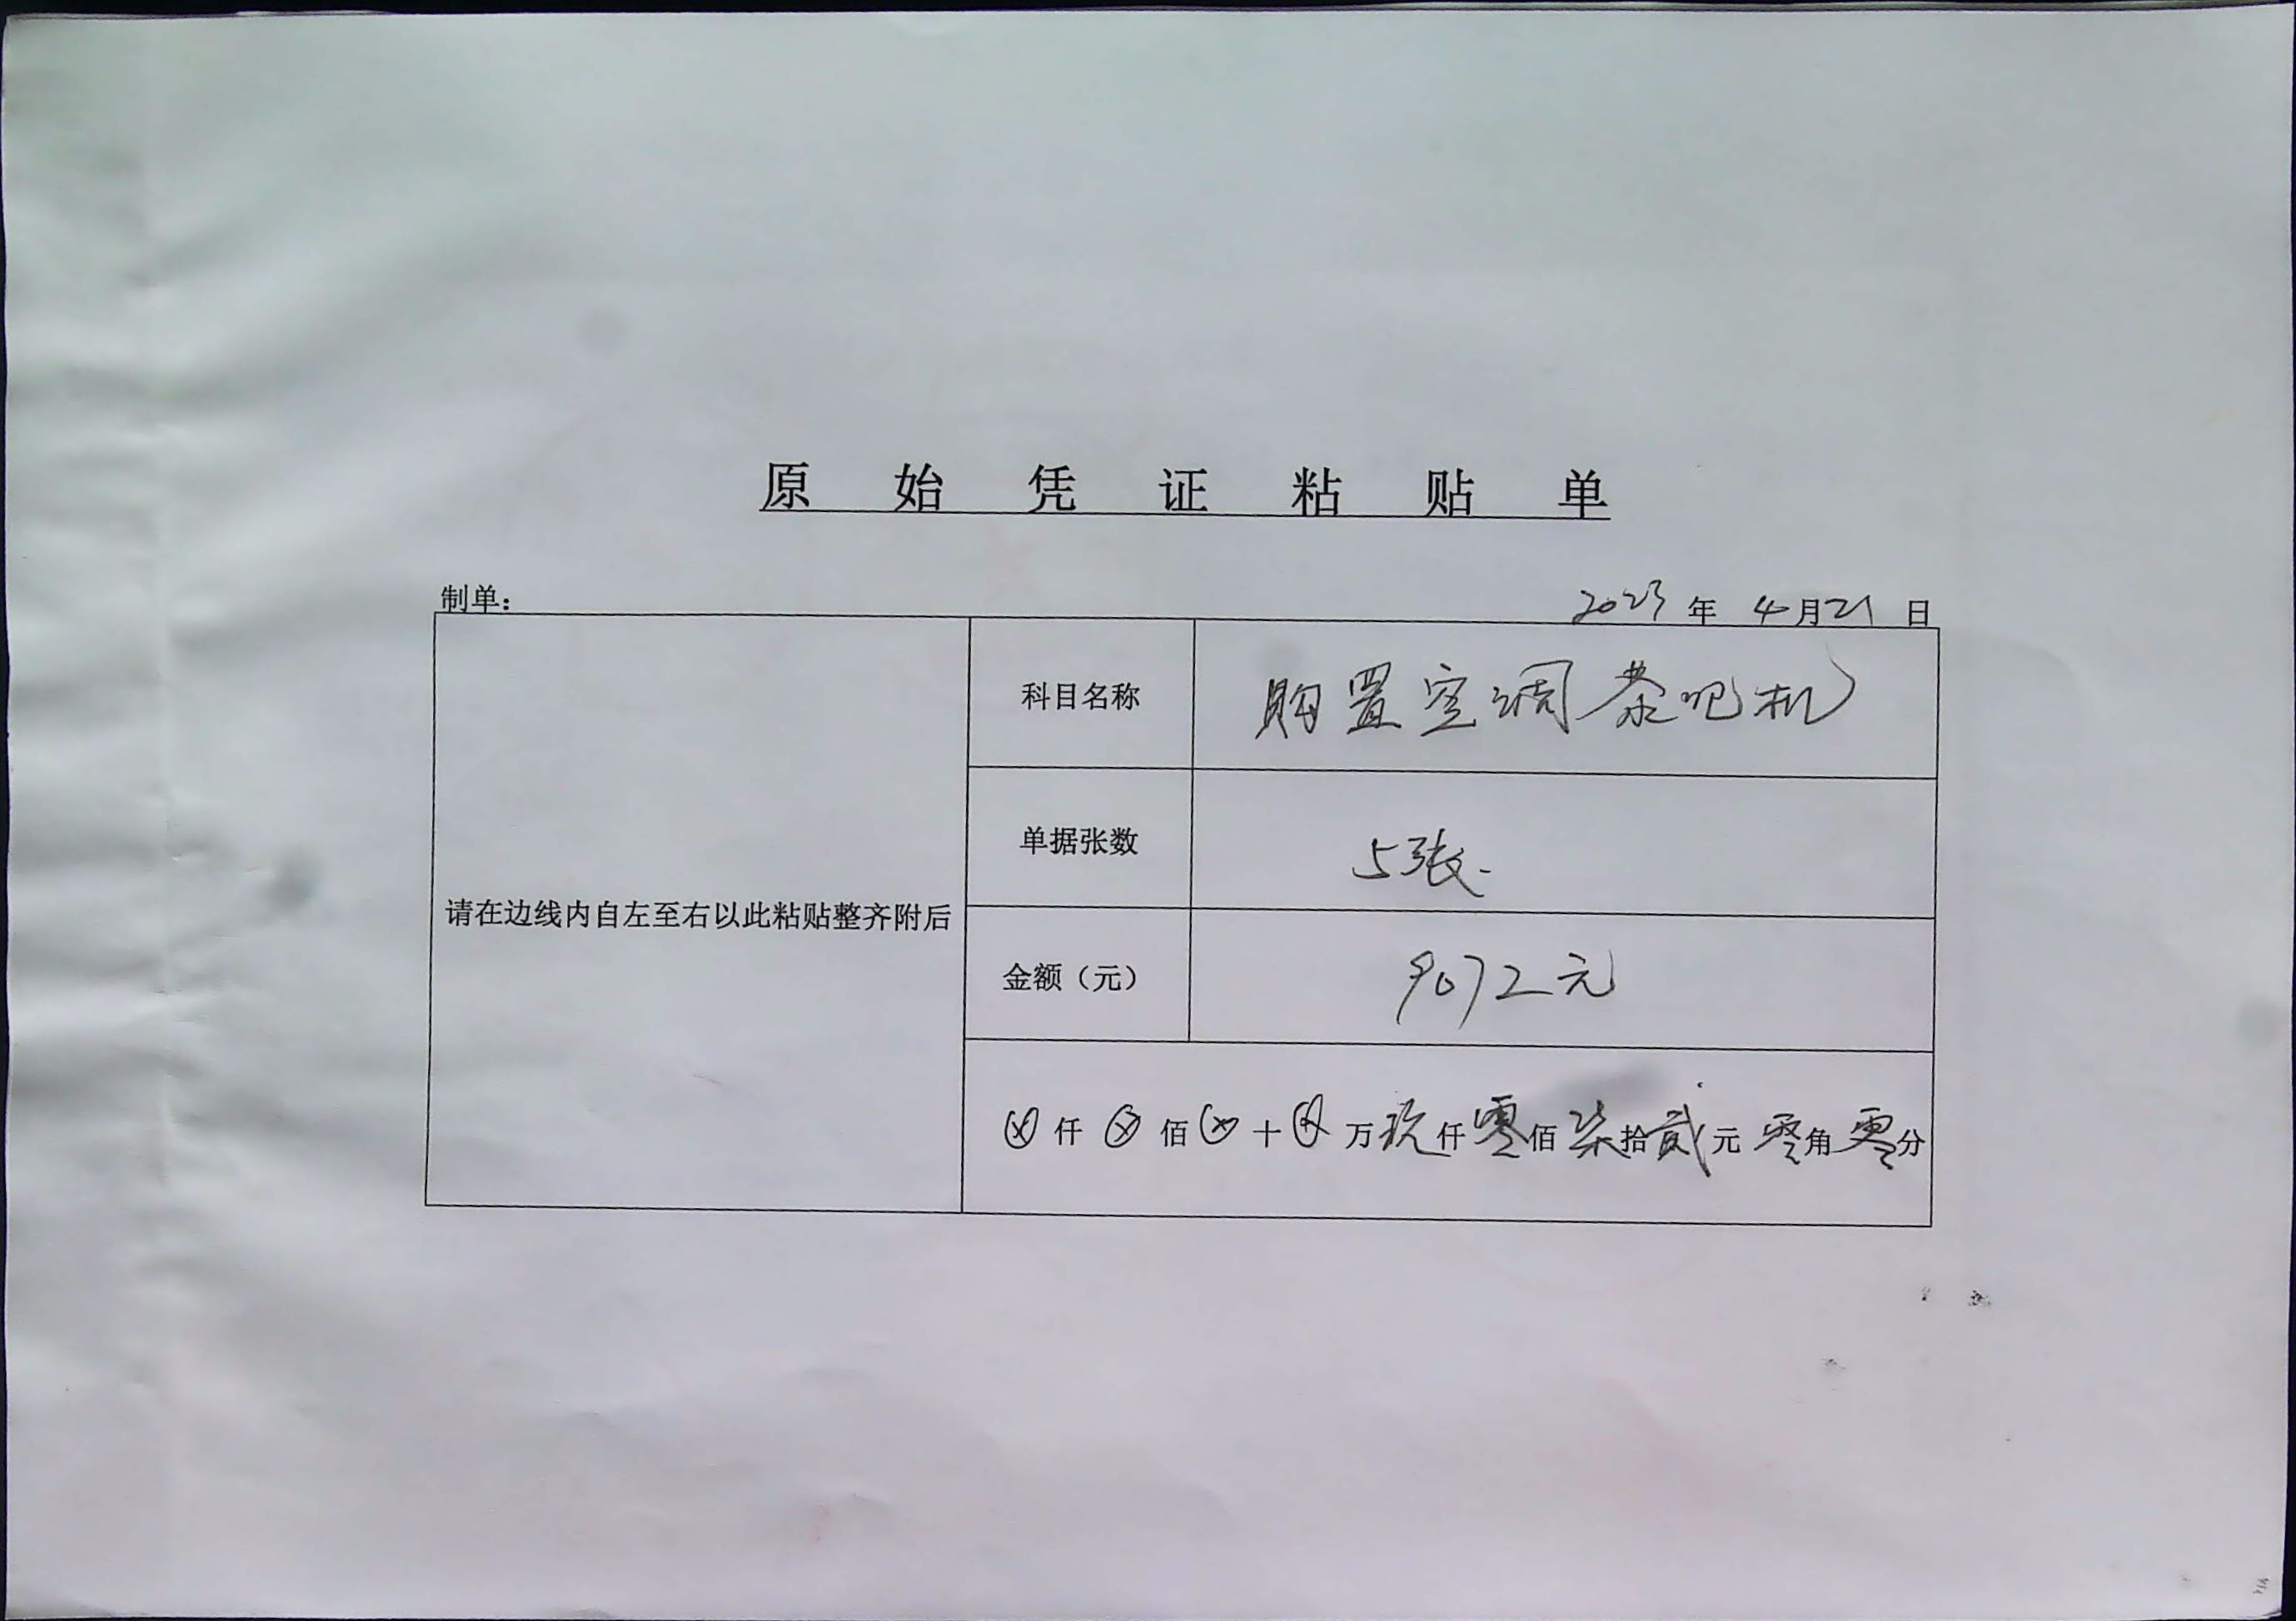 原始凭证粘贴单
制单：
2023年4月21日
请在边线内自左至右以此粘贴整齐附后
科目名称
购置空调茶吧机
单据张数
5张.
金额（元）
9072元
ⓧ仟ⓧ佰ⓧ十ⓧ万玖仟零佰柒拾贰元零角零分